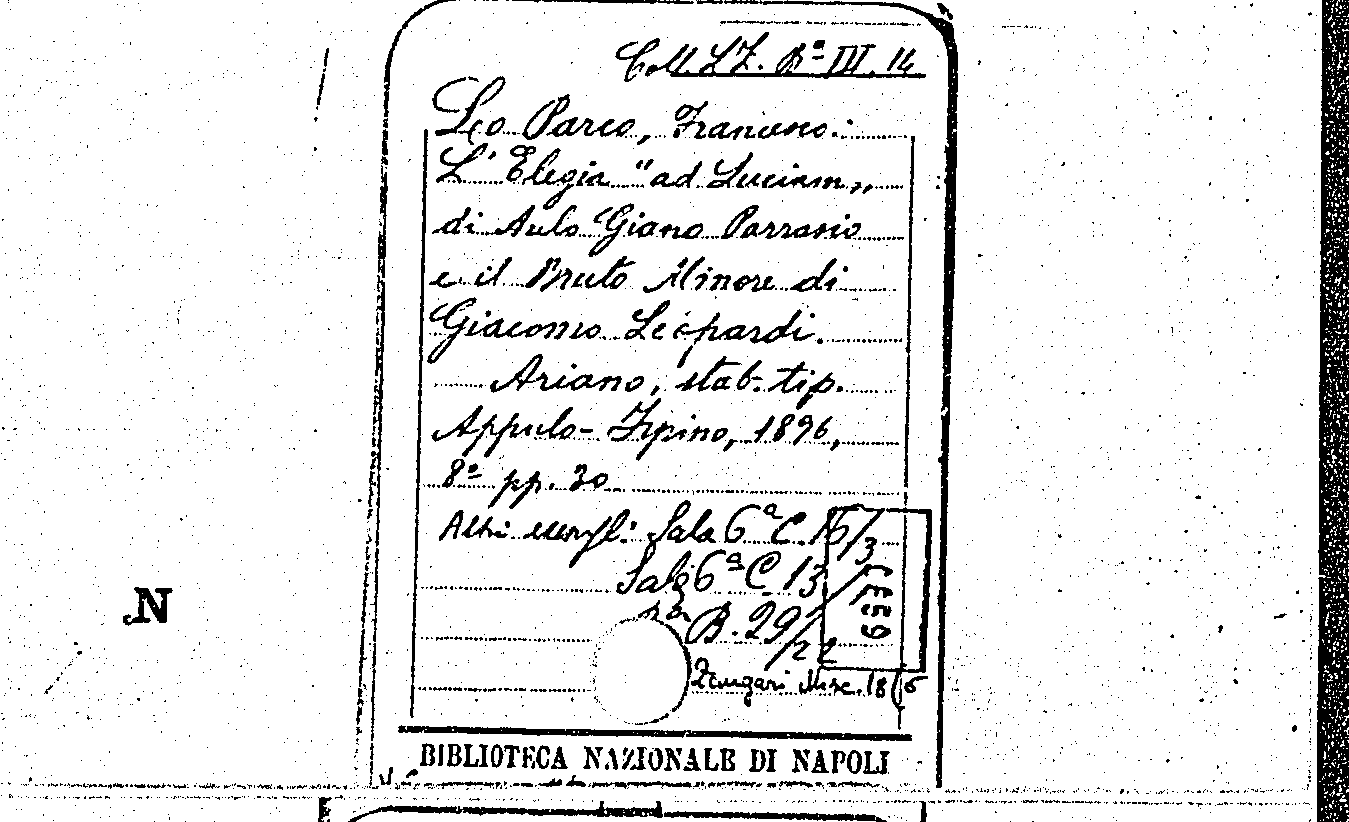 Coll. LZ. Bª III. 14
Lo Parco, Francesco:
L'Elegia "ad Luciam„
di Aulo Giano Parrasio
e il Bruto Minore di
Giacomo Leopardi.
Ariano, stab. tip.
Appulo-Irpino, 1896,
8º pp. 30
Altri esempl: Sala 6ª C. 15/3
Sala 6ª C. 13/
B. 29/22
Zangari Misc. 18
N
BIBLIOTECA NAZIONALE DI NAPOLI